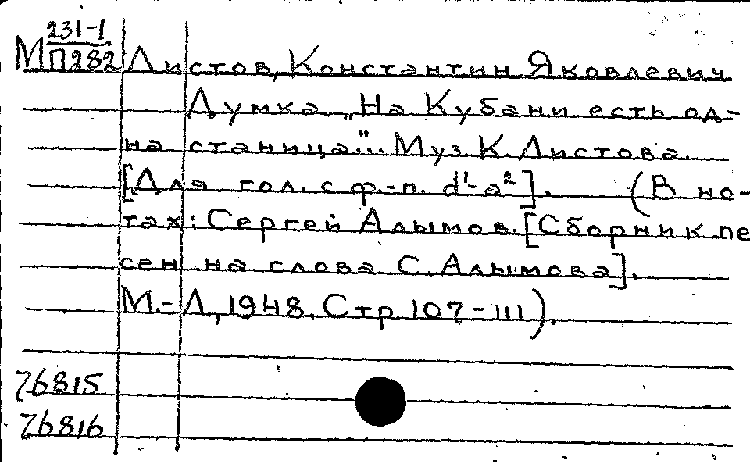 231-1
М П282 Листов, Константин Яковлевич
Думка „На Кубани есть од-
на станица"... Муз. К. Листова.
[Для гол. с ф-п. d¹-a²]. (В но-
тах: Сергей Алымов. [Сборник пе
сен на слова С. Алымова].
М.-Л., 1948. Стр. 107-111).
76815
76816